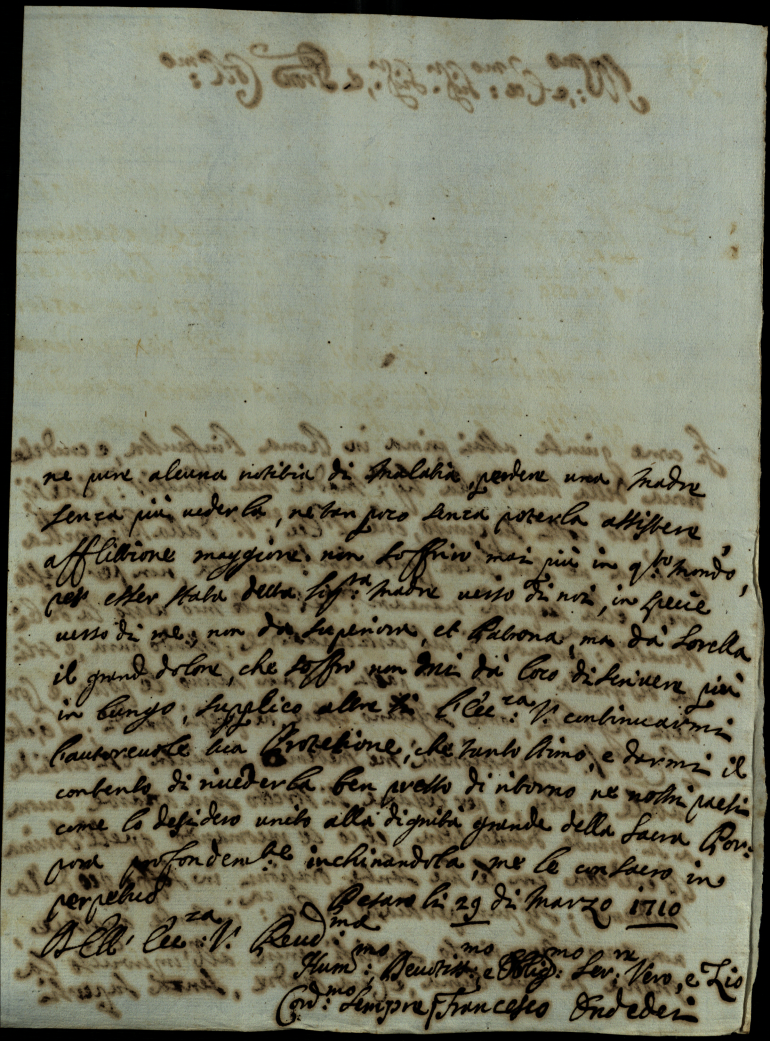 ne pure alcuna notitia di Malatia, perdere una Madre
senza più vederla, ne tan poco senza poterla assistere
afflittione maggiore non soffrirò mai più in q.sto Mondo,
per esser stata detta Sig.ra Madre verso di noi, in specie
verso di me, non da Superiora, et Padrona, ma da Sorella
il grand dolore, che soffro non mi dà loco di scrivere più
in lungo, supplico altre l'Ecc.za V. continuarmi
l'autorevole sua Protetione, che tanto stimo, e darmi il
contento di rivederla ben presto di ritorno ne nostri paesi
come lo desidero unito alla dignità grande della Sacra Por:
pora profondem.te inchinandola, me le consacro in
perpetuo
Pesaro li 29 di Marzo 1710
Dell' Ecc.za V. Reud.ma
Hum.mo Devotiss.mo e Oblig.mo Ser.re Vero, e Zio
Cord.mo Sempre Francesco Ondedei